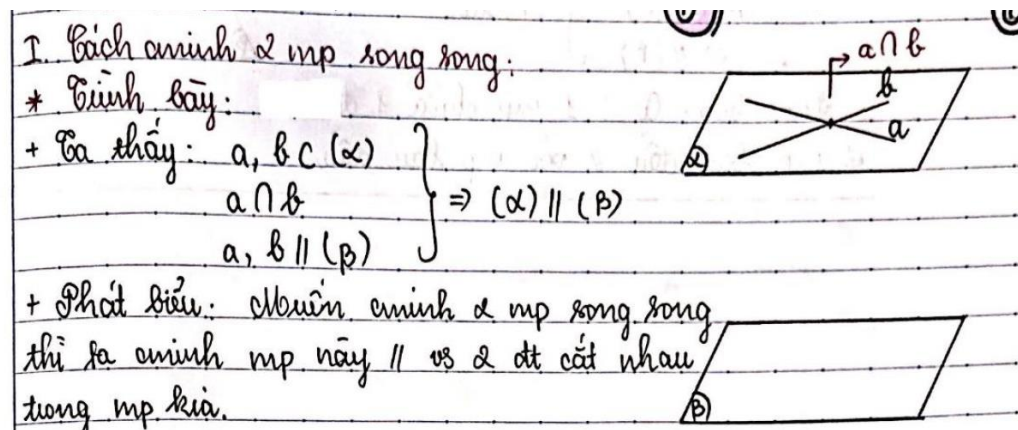 I. Cách cminh 2 mp song song:
* Trình bày:
+ Ta thấy: a, b ⊂ (α)
a ∩ b
a, b // (β)
⇒ (α) // (β)
+ Phát biểu: Muốn cminh 2 mp song song
thì ta cminh mp này // vs 2 đt cắt nhau
trong mp kia.
a ∩ b
b
a
α
β